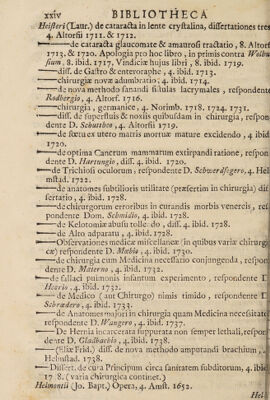 xxiv BIBLIOTHECA
Heisteri (Laur.) de cataracta in lente crystallina, dissertationes tres
4. Altorfii 1711. & 1712.
—— de cataracta glaucomate & amaurosi tractatio, 8. Altorf
1713. & 1720. Apologia pro hoc libro, in primis contra Wolhu
sium, 8. ibid. 1717. Vindiciæ hujus libri, 8. ibid. 1719.
—— diss. de Gastro & enteroraphe, 4. ibid. 1713.
—— chirurgiæ novæ adumbratio, 4. ibid. 1714.
—— de nova methodo sanandi fistulas lacrymales, respondente
Rodbergio, 4. Altorf. 1716.
—— chirurgia, germanice, 4. Norimb. 1718. 1724. 1731.
—— diss. de superfluis & noxiis quibusdam in chirurgia, respon
dente D. Schurthoo, 4. Altorfii 1719.
—— de fœtu ex utero matris mortuæ mature excidendo, 4 ibid
1720.
—— de optima Cancrum mammarum extirpandi ratione, respon
dente D. Hartungio, diss. 4. ibid. 1720.
—— de Trichiosi oculorum, respondente D. Schwerdfegero, 4. Hel
mstad. 1722.
—— de anatomes subtilioris utilitate (præsertim in chirurgia) dis
sertatio, 4. ibid. 1728.
—— de chirurgorum erroribus in curandis morbis venereis, res
pondente Dom. Schmidio, 4. ibid. 1728.
—— de Kelotomiæ abusu tollendo, diss. 4. ibid. 1728.
—— de Alto adparatu, 4. ibid. 1728.
—— Observationes medicæ miscellaneæ (in quibus variæ chirurgi
cæ) respondente D. Mabio, 4. ibid. 1730.
—— de chirurgia cum Medicina necessario conjungenda, respon
dente D. Materno, 4. ibid. 1732.
—— de fallaci pulmonis infantum experimento, respondente D
4. ibid. 1732.
—— de Medico (aut Chirurgo) nimis timido, respondente D
Schradero, 4. ibid. 1733.
—— de Anatomes majori in chirurgia quam Medicina necessitate
respondente D. Wangero, 4. ibid. 1737.
—— De Hernia incarcerata suppurata non semper lethali, respon
dente D. Gladbachio, 4. ibid. 1738.
—— (Eliæ Frid.) diss. de nova methodo amputandi brachium
Helmstad. 1738.
—— Dissert. de cura Principum circa sanitatem subditorum, 4. ibid
1738. (varia chirurgica continet.)
Helmontii (Jo. Bapt.) Opera, 4. Amst. 1652.
Hel-